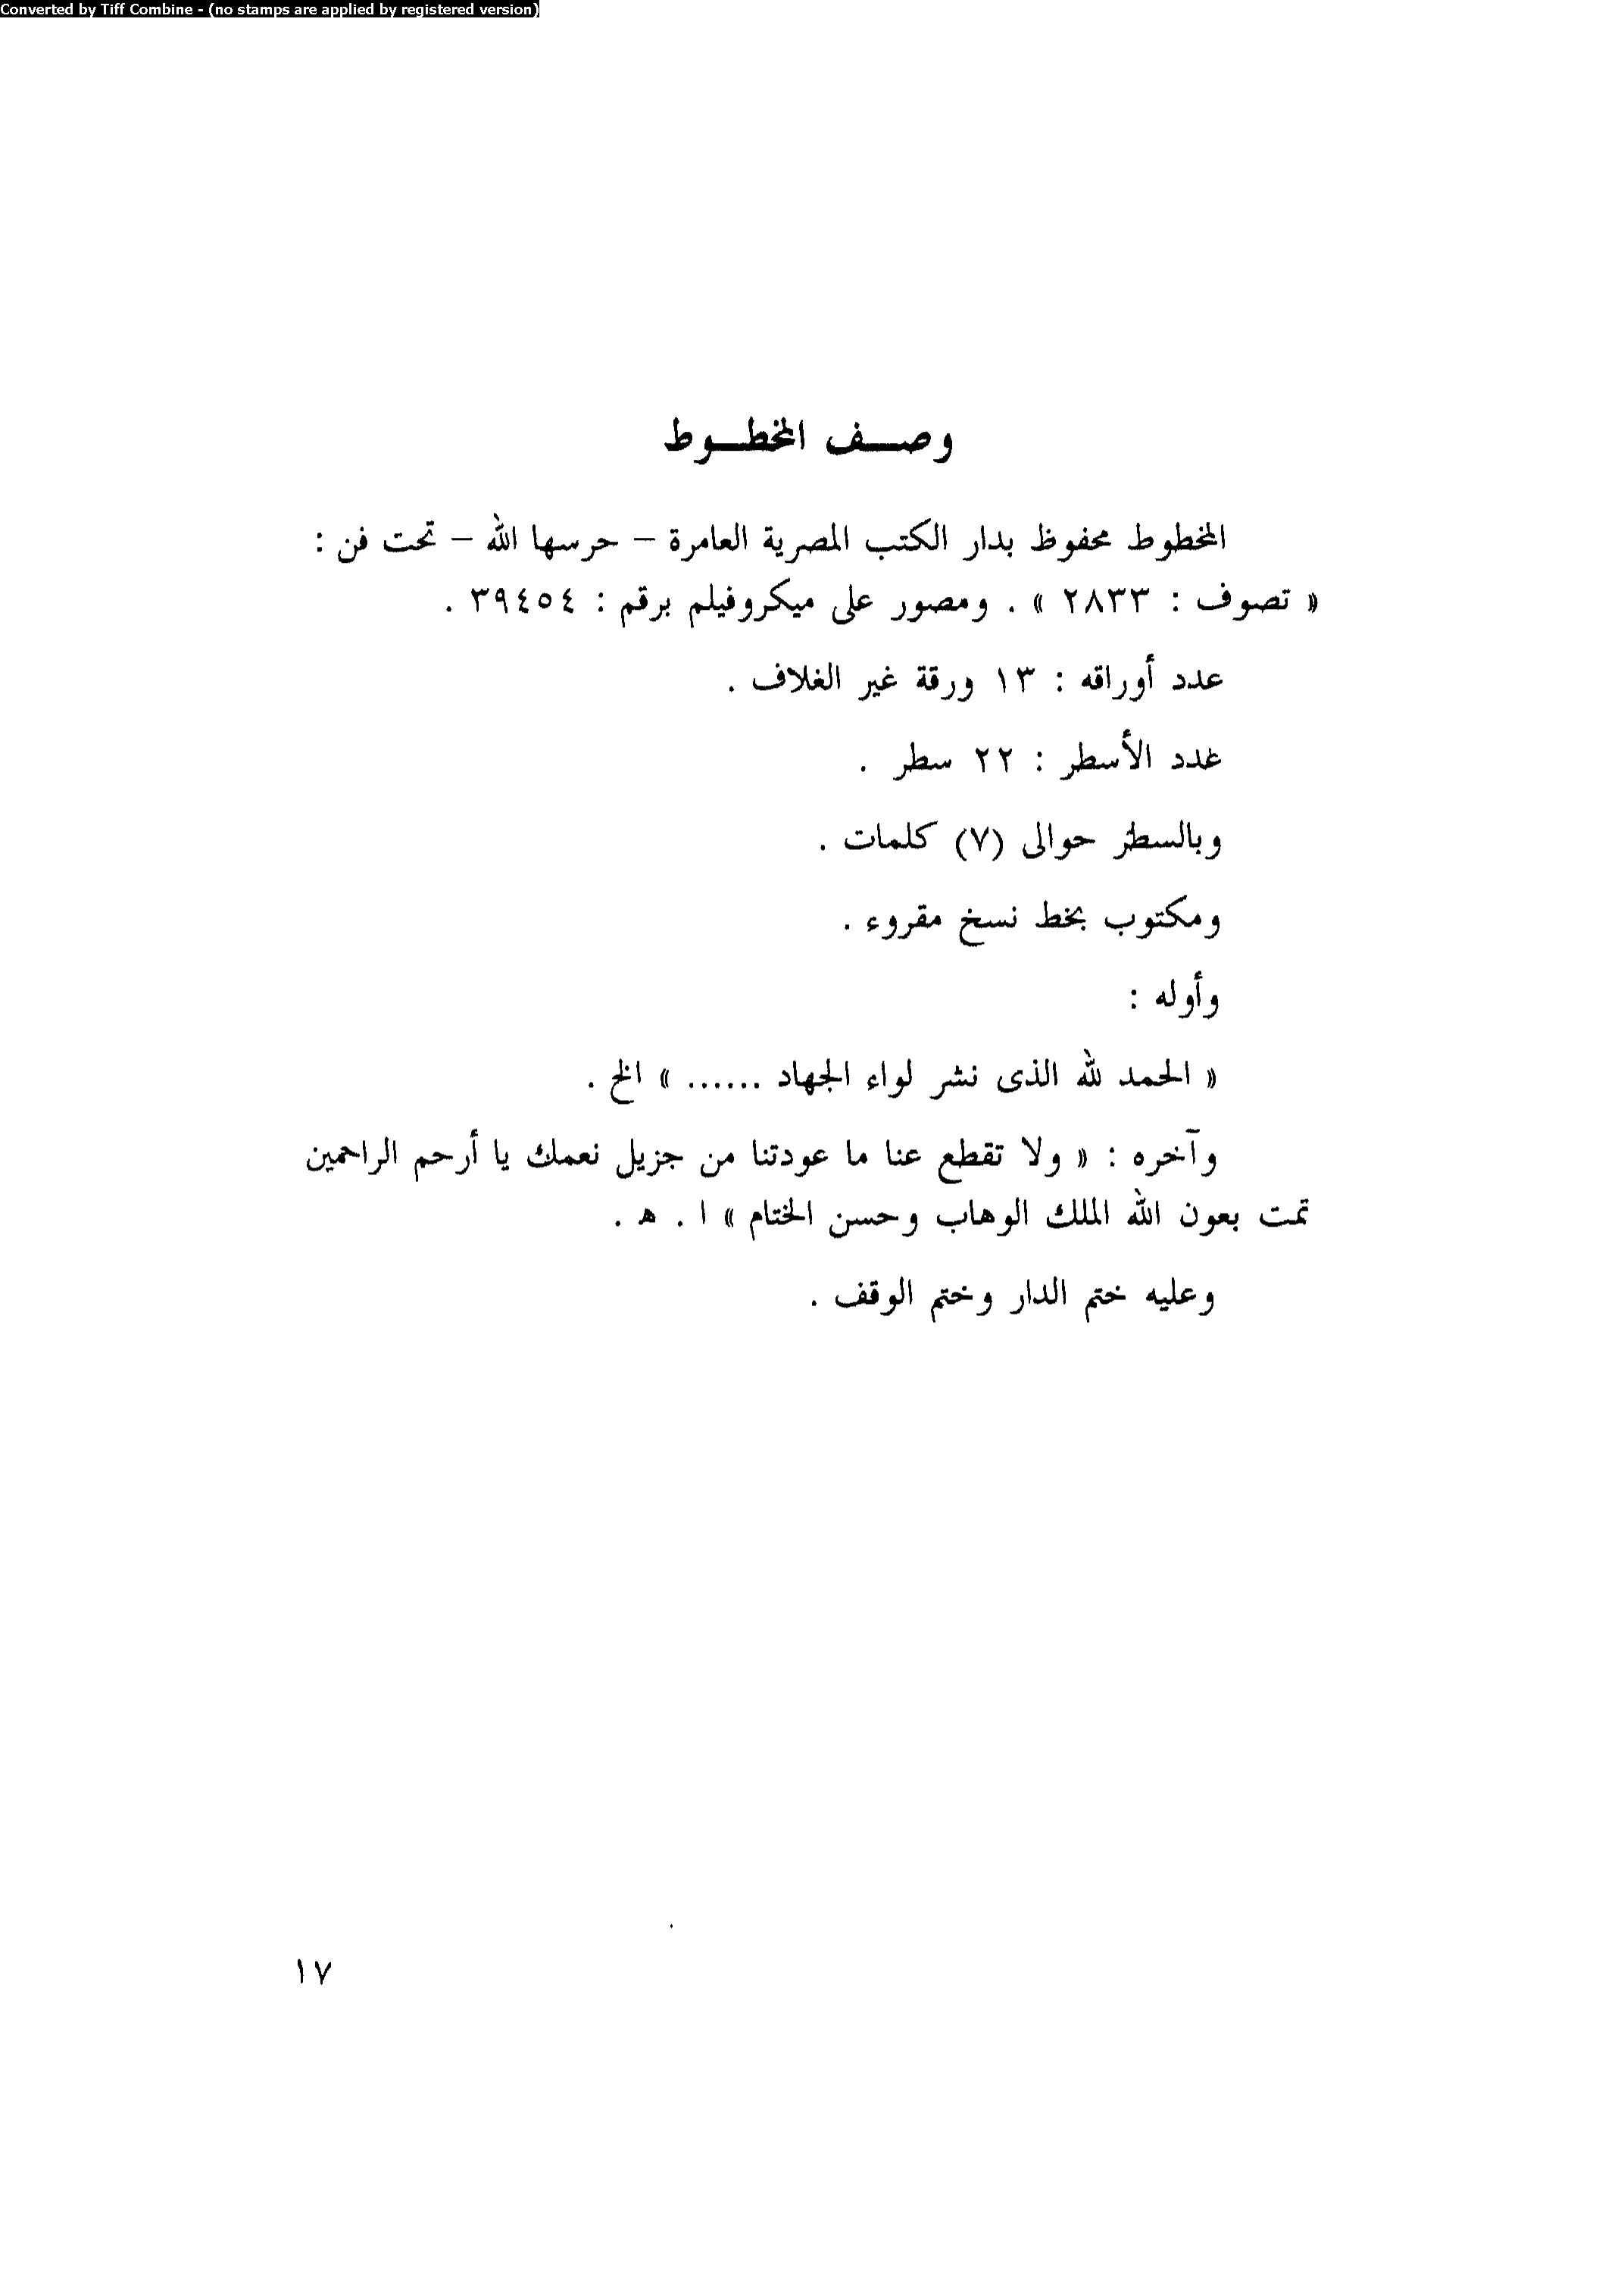 Converted by Tiff Combine - (no stamps are applied by registered version)
وصـف المخطـوط
المخطوط محفوظ بدار الكتب المصرية العامرة – حرسها الله – تحت فن :
« تصوف : ٢٨٣٣ » . ومصور على ميكروفيلم برقم : ٣٩٤٥٤ .
عدد أوراقه : ١٣ ورقة غير الغلاف .
عدد الأسطر : ٢٢ سطر .
وبالسطر حوالى (٧) كلمات .
ومكتوب بخط نسخ مقروء .
وأوله :
« الحمد لله الذى نشر لواء الجهاد ...... » الخ .
وآخره : « ولا تقطع عنا ما عودتنا من جزيل نعمك يا أرحم الراحمين
تمت بعون الله الملك الوهاب وحسن الختام » ا . هـ .
وعليه ختم الدار وختم الوقف .
١٧